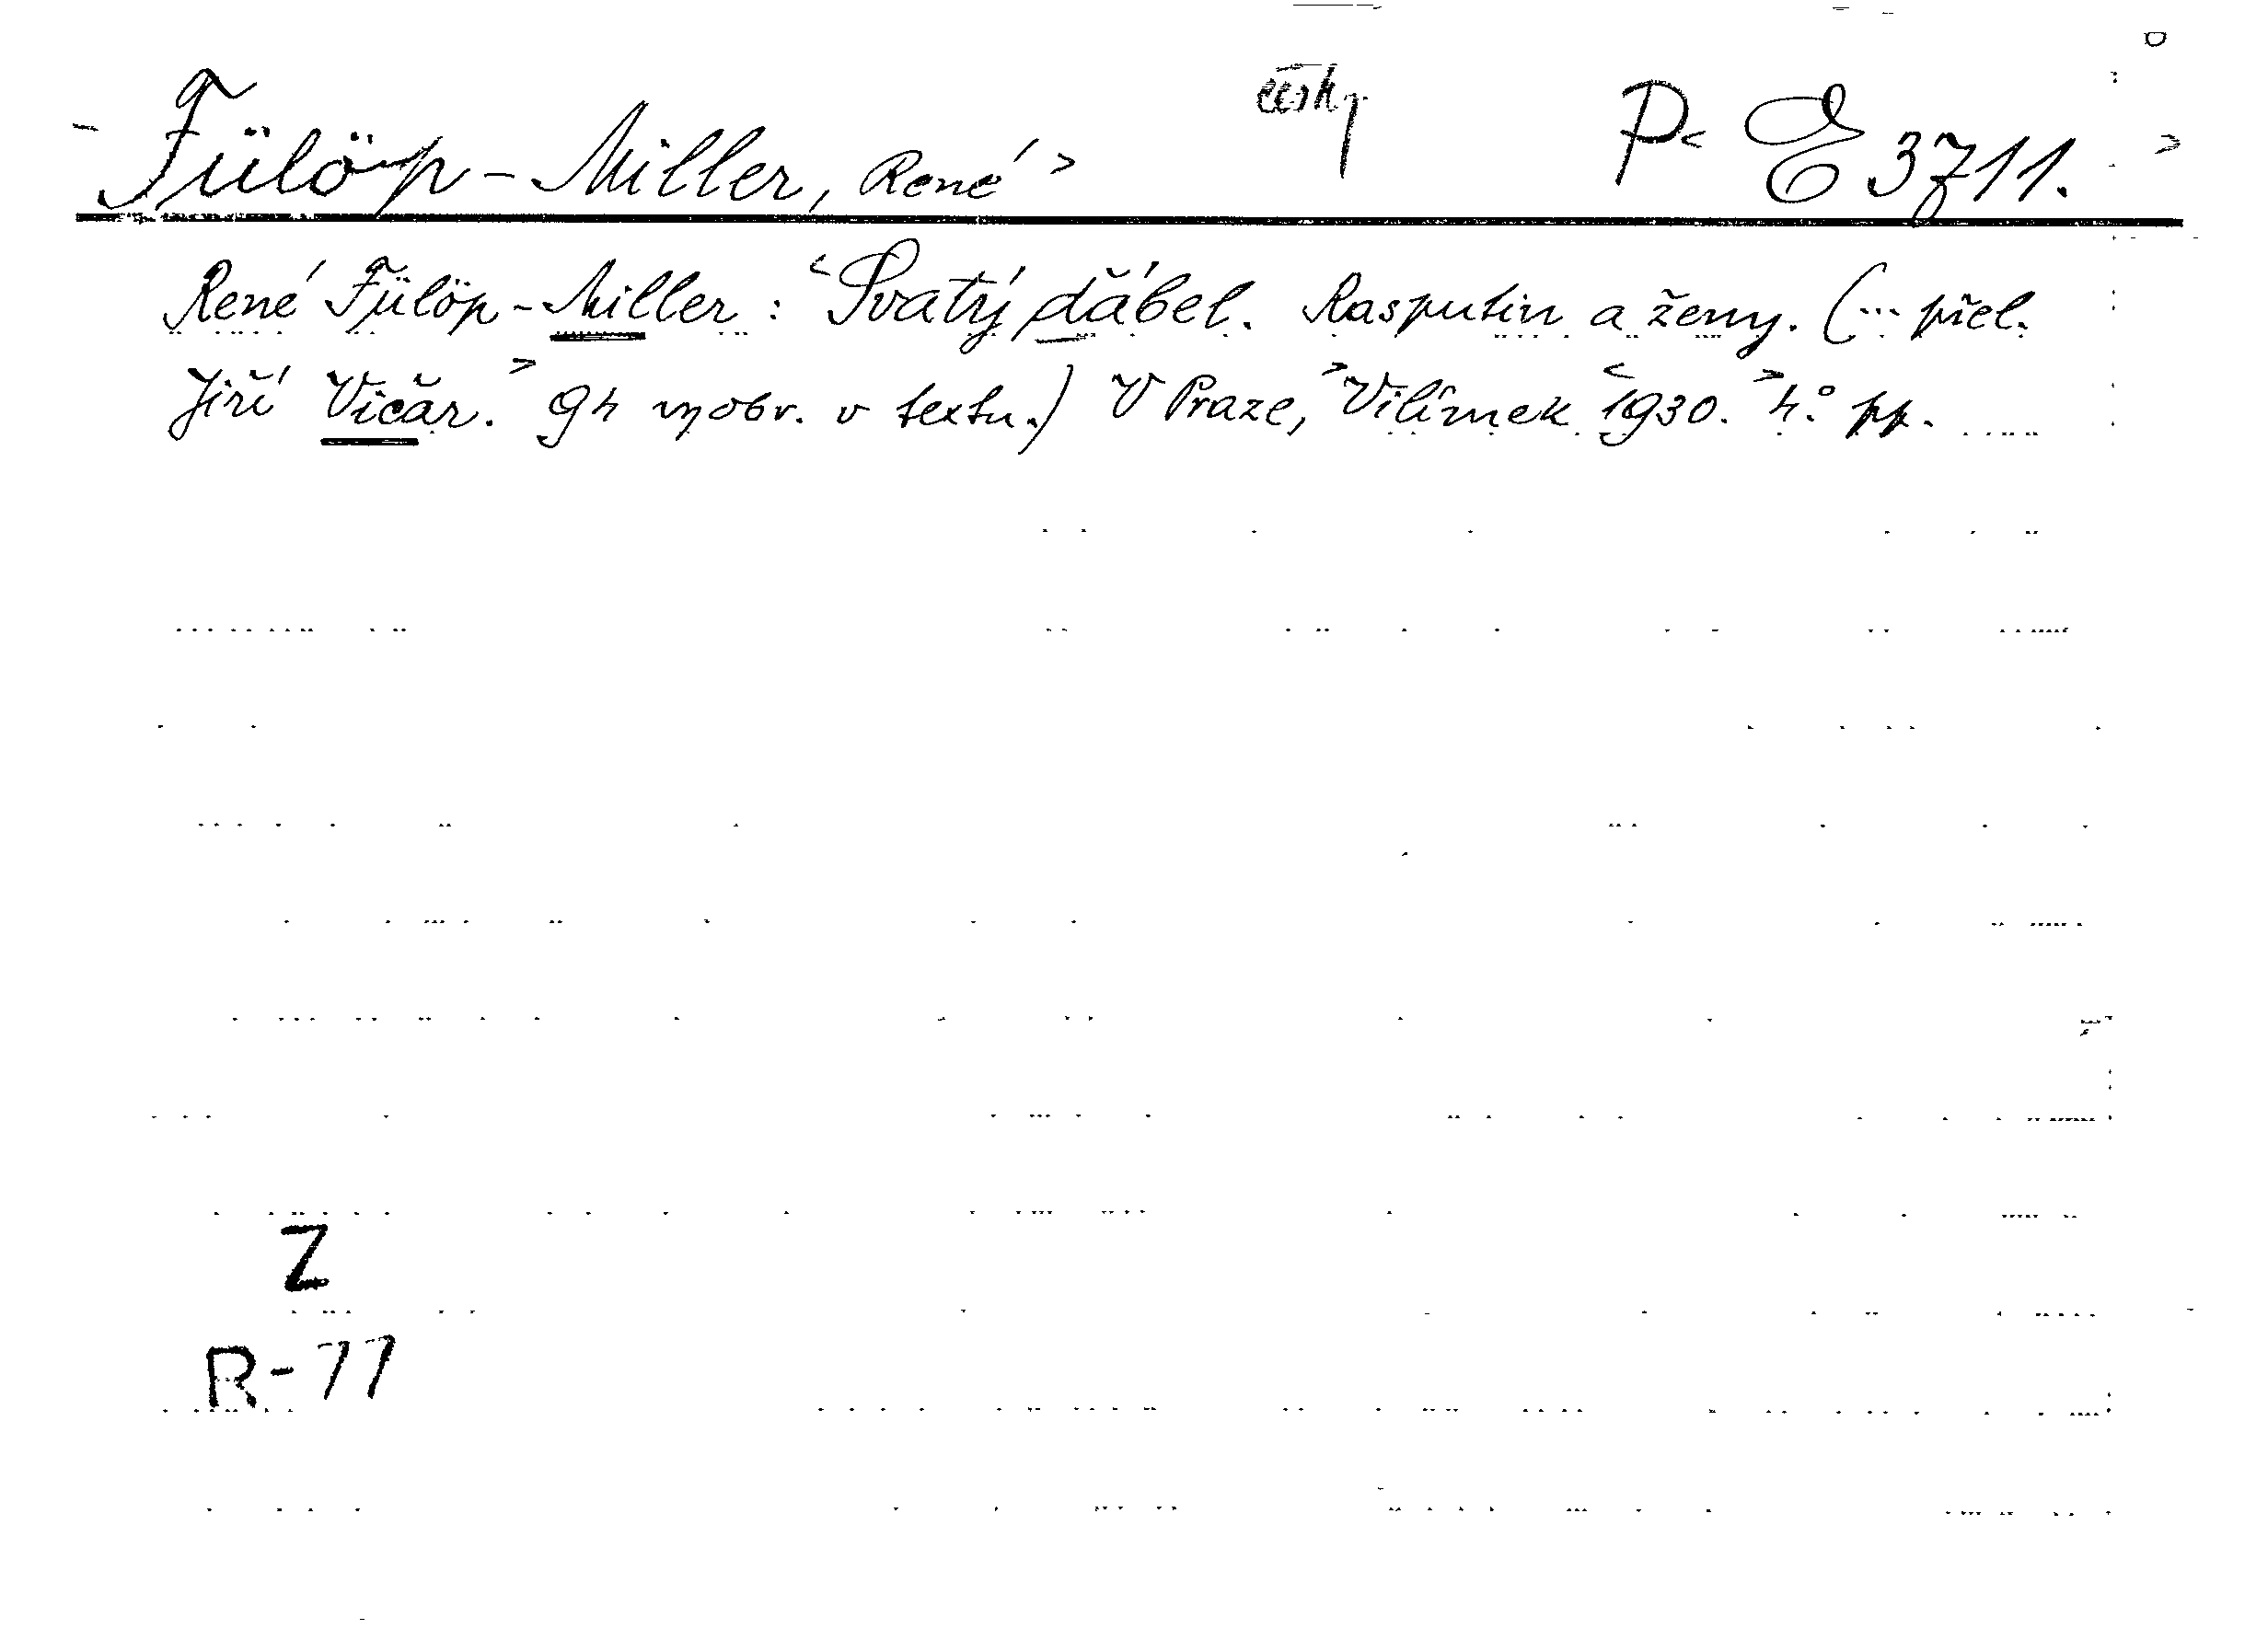 Fülöp-Miller, René> česky P< E 3711. >
René Fülöp-Miller: <Svatý ďábel. Rasputin a ženy. (... přel.
Jiří Vičar.> 94 vyobr. v textu.) V Praze, >Vilímek <1930. >4.° pp.
Z
R-77